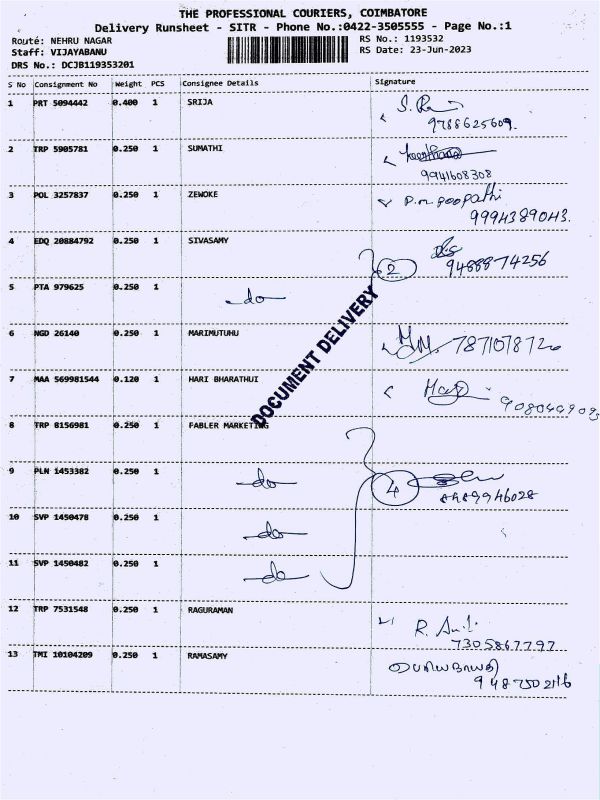 THE PROFESSIONAL COURIERS, COIMBATORE
Delivery Runsheet - SITR - Phone No.:0422-3505555 - Page No.:1
Route: NEHRU NAGAR
RS No.: 1193532
Staff: VIJAYABANU
RS Date: 23-Jun-2023
DRS No.: DCJB119353201
S No Consignment No Weight PCS Consignee Details Signature
1 PRT 5094442 0.400 1 SRIJA
9788625609.
2 TRP 5905781 0.250 1 SUMATHI
9941608308
3 POL 3257837 0.250 1 ZEWOKE P.M. goopathi
9994389043.
4 EDQ 20884792 0.250 1 SIVASAMY
2 9488874256
5 PTA 979625 0.250 1 do
DOCUMENT DELIVERY
6 NGD 26140 0.250 1 MARIMUTUHU M.M. 7871078720
7 MAA 569981544 0.120 1 HARI BHARATHUI Hari
8 TRP 8156981 0.250 1 FABLER MARKETING
9 PLN 1453382 0.250 1 do 4
10 SVP 1450478 0.250 1 do
11 SVP 1450482 0.250 1 do
12 TRP 7531548 0.250 1 RAGURAMAN R.
7305867797
13 TMI 10104209 0.250 1 RAMASAMY
9487502116